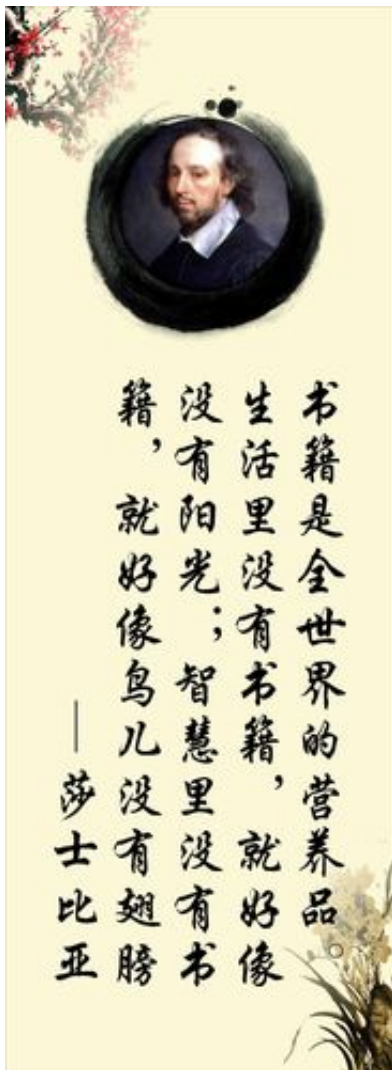 书籍是全世界的营养品。
生活里没有书籍，就好像
没有阳光；智慧里没有书
籍，就好像鸟儿没有翅膀
——莎士比亚